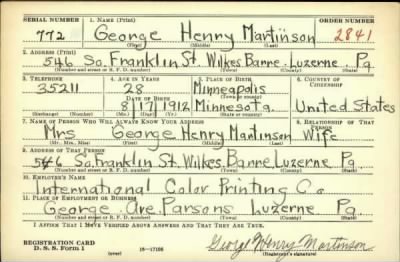 SERIAL NUMBER 1. NAME (Print) ORDER NUMBER
772 George Henry Martinson 2841
(First) (Middle) (Last)
2. ADDRESS (Print)
546 So. Franklin St. Wilkes Barre. Luzerne. Pa.
(Number and street or R. F. D. number) (Town) (County) (State)
3. TELEPHONE 4. AGE IN YEARS 5. PLACE OF BIRTH 6. COUNTRY OF CITIZENSHIP
35211 28 Minneapolis
DATE OF BIRTH
8/17/1912 Minnesota. United States
7. NAME OF PERSON WHO WILL ALWAYS KNOW YOUR ADDRESS 8. RELATIONSHIP OF THAT PERSON
Mrs George Henry Martinson Wife
(Mr., Mrs., Miss) (First) (Middle) (Last)
9. ADDRESS OF THAT PERSON
546 So. Franklin St. Wilkes. Barre. Luzerne Pa
(Number and street or R. F. D. number) (Town) (County) (State)
10. EMPLOYER'S NAME
International Color Printing Co
11. PLACE OF EMPLOYMENT OR BUSINESS
George. Ave. Parsons Luzerne Pa
(Number and street or R. F. D. number) (Town) (County) (State)
I AFFIRM THAT I HAVE VERIFIED ABOVE ANSWERS AND THAT THEY ARE TRUE.
REGISTRATION CARD
D. S. S. Form 1 (over) 16—17105 George Henry Martinson
(Registrant's signature)